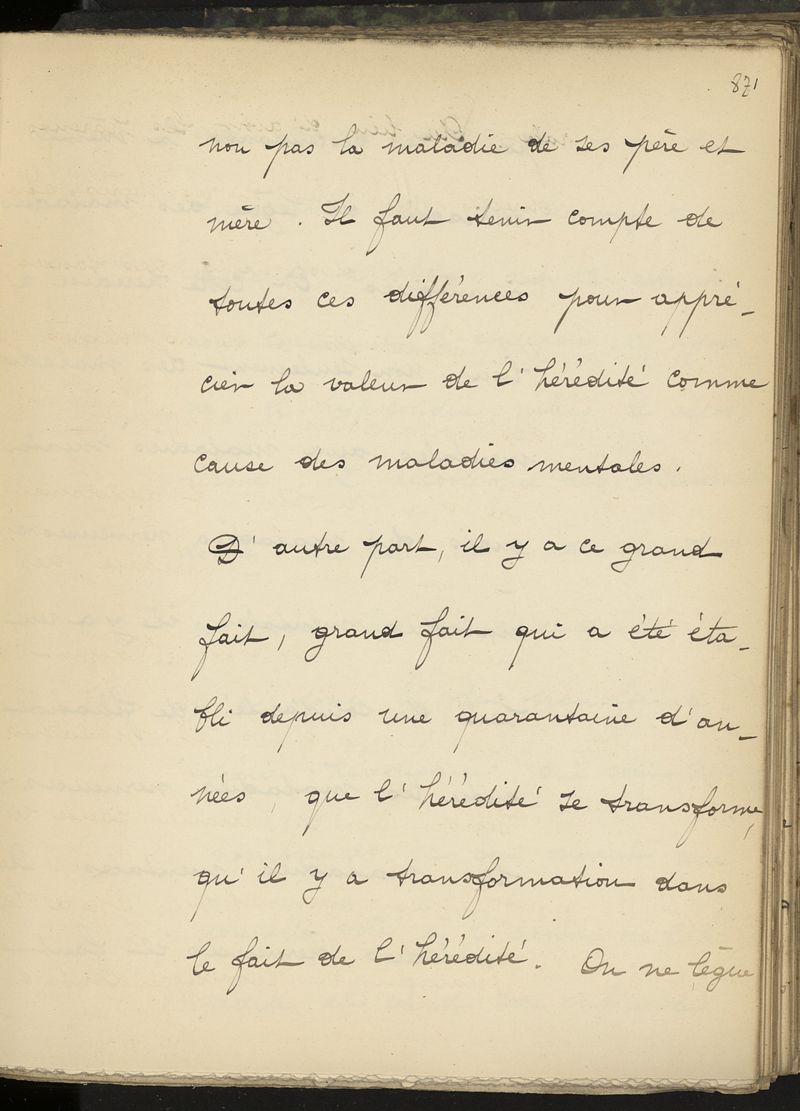 871
non pas la maladie de ses père et
mère. Il faut tenir compte de
toutes ces différences pour appré-
cier la valeur de l'hérédité comme
cause des maladies mentales.
D'autre part, il y a ce grand
fait, grand fait qui a été éta-
bli depuis une quarantaine d'an-
nées, que l'hérédité se transforme,
qu'il y a transformation dans
le fait de l'hérédité. On ne lègue